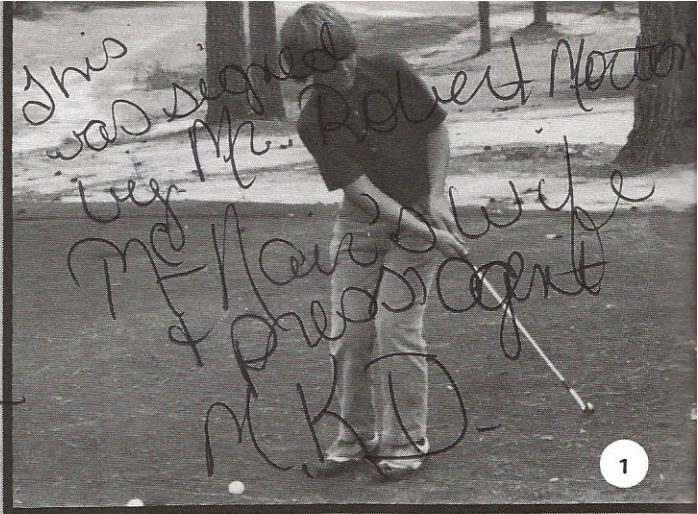 This
was signed
by. Mr. Robert Morton
McNair's wife
& press agent
M.K.D.
1